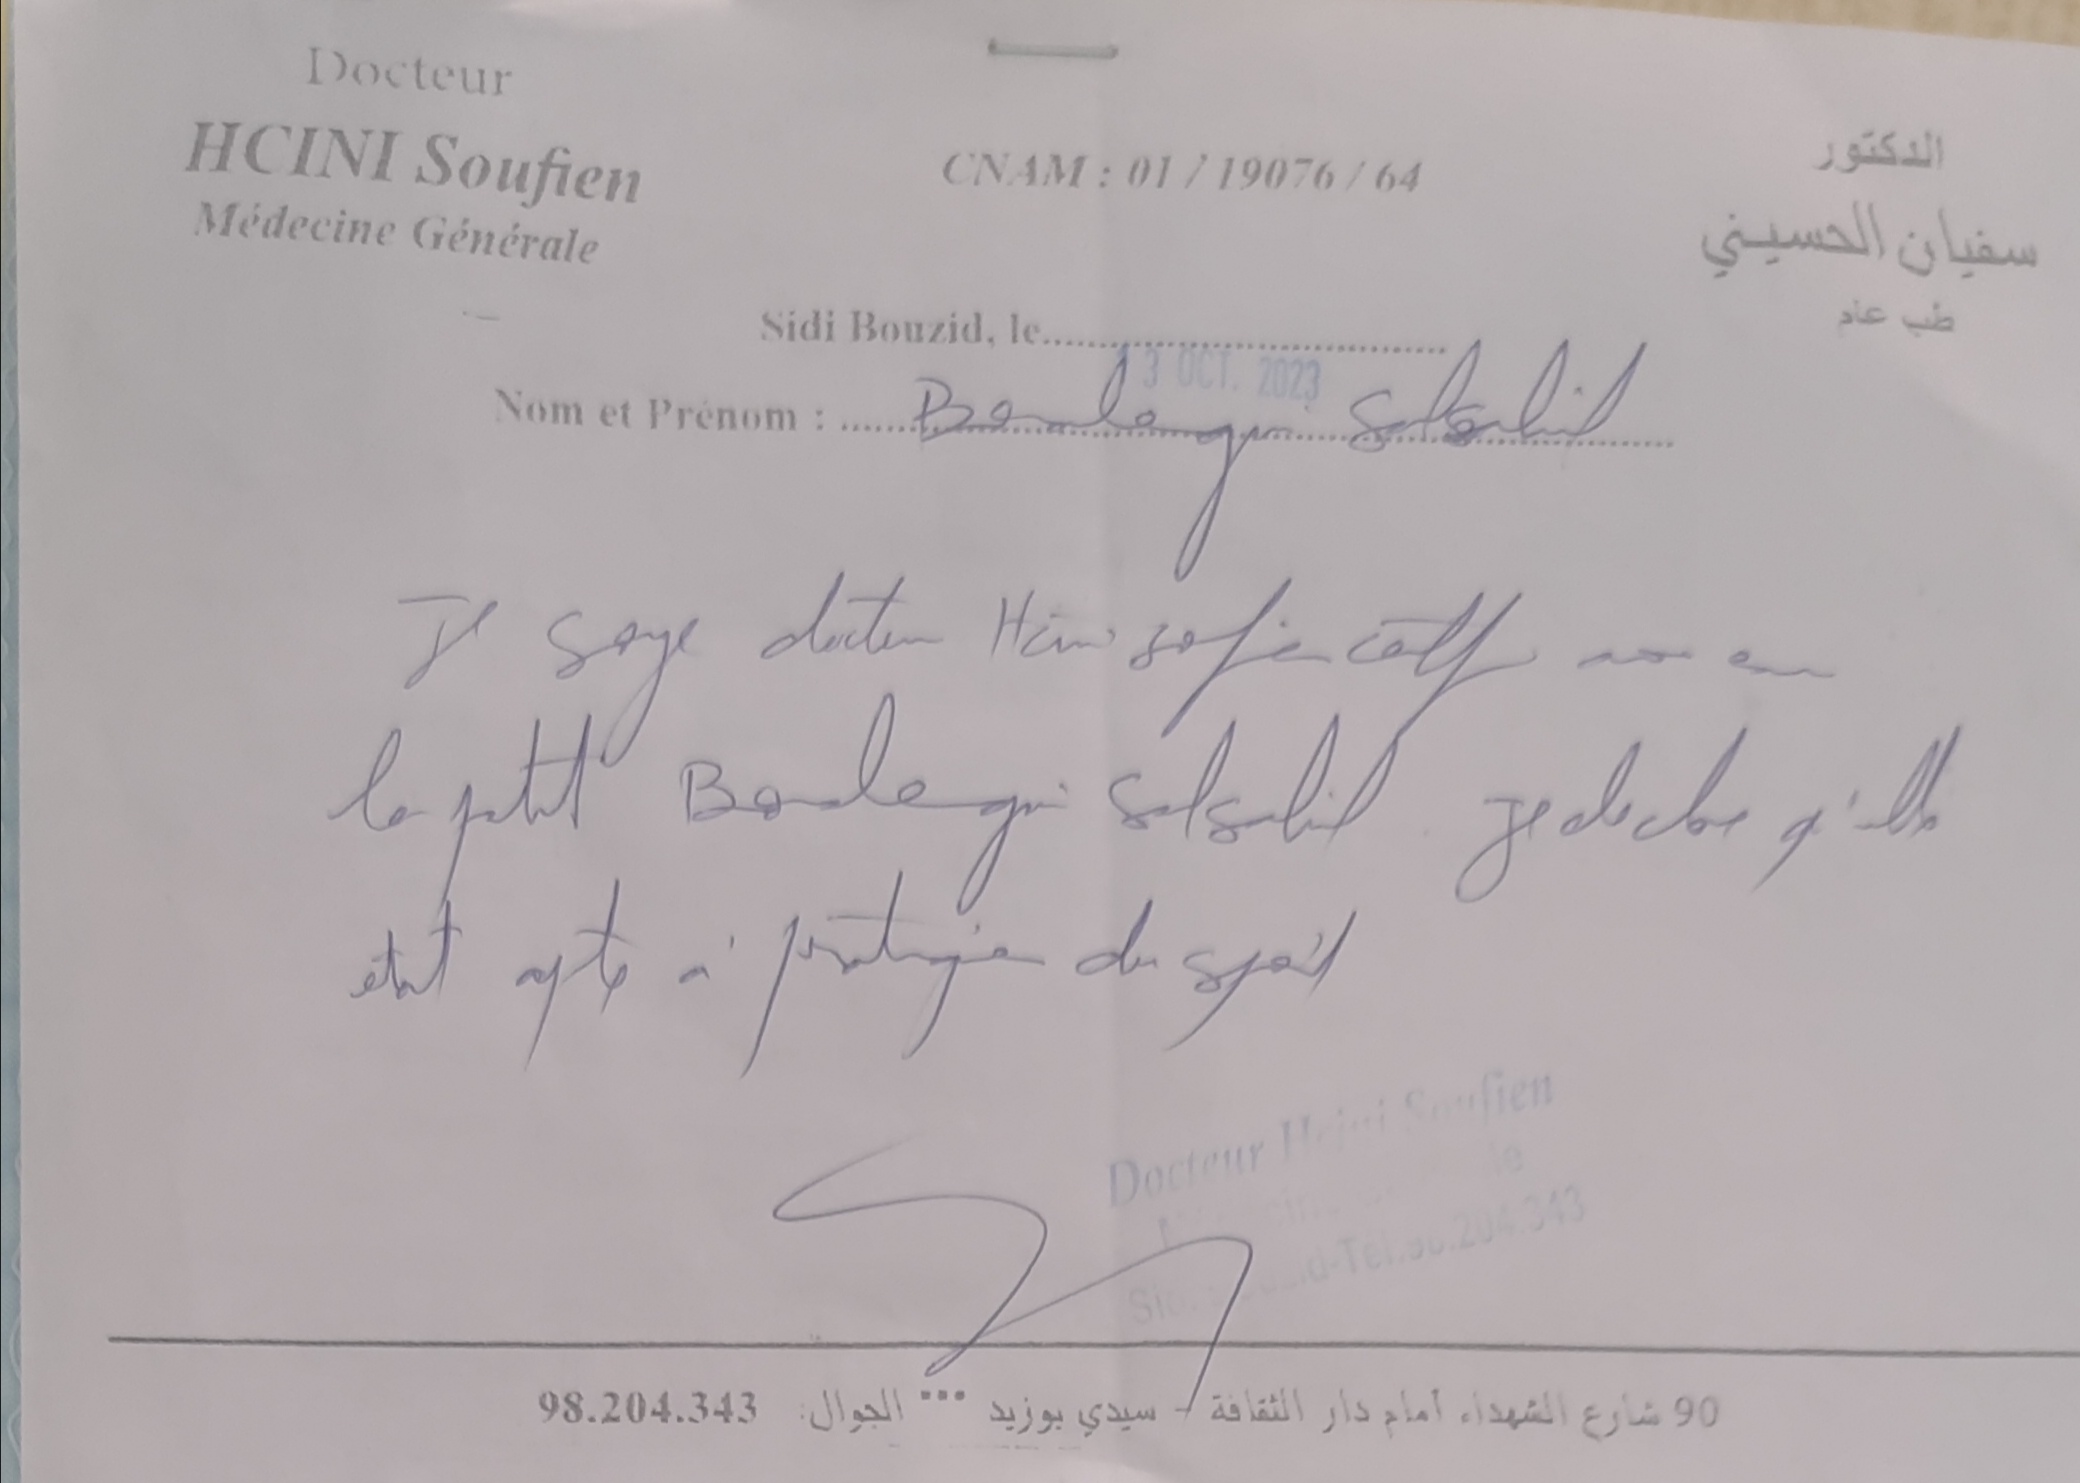 Docteur
HCINI Soufien
Médecine Générale
CNAM : 01 / 19076 / 64
الدكتور
سفيان الحسيني
طب عام
Sidi Bouzid, le
3 OCT. 2023
Nom et Prénom : Boulegui Salsabil
Je docteur Hcini Sofien
le petit Boulegui Salsabil. Je declare q'elle
etat apte a' pratiquer du sport
Docteur Hcini Soufien
Tél. 98.204.343
90 شارع الشهداء أمام دار الثقافة - سيدي بوزيد *** الجوال: 98.204.343